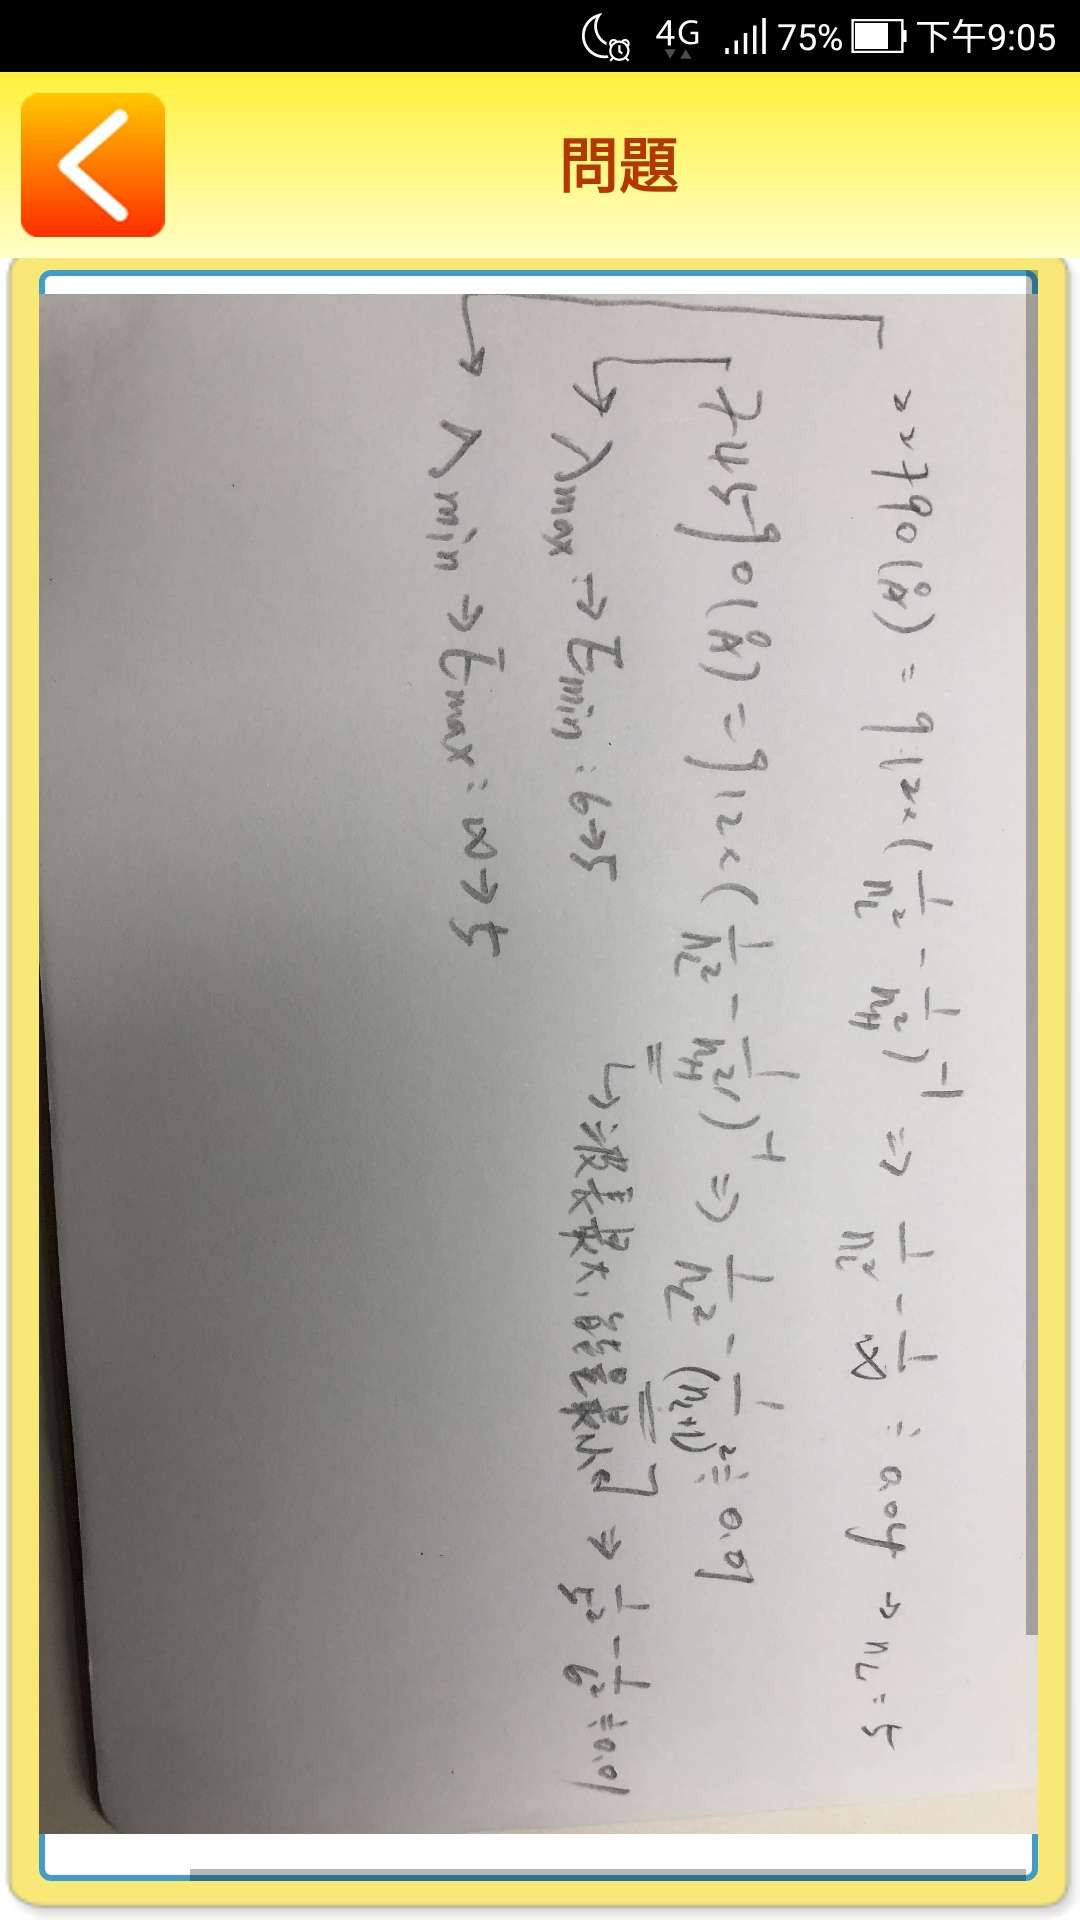 4G 75% 下午9:05
問題
22790(Å) = 912×(1/n_L² - 1/n_H²)⁻¹ ⇒ 1/n_L² - 1/∞ ≒ 0.04 ⇒ n_L = 5
74590(Å) = 912×(1/n_L² - 1/n_H²)⁻¹ ⇒ 1/n_L² - 1/(n_L+1)² ≒ 0.01
↳ ∵波長最大,能量最小 ⇒ 1/5² - 1/6² ≒ 0.01
λmax ⇒ Emin : 6→5
λmin ⇒ Emax : ∞→5